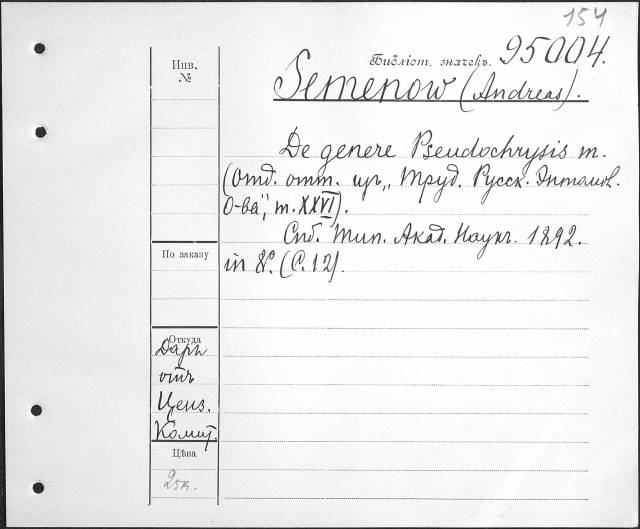 154
Библіот. значекъ. 95004.
Инв.
№
Semenow (Andreas).
De genere Pseudochrysis m.
(Отд. отт. изъ „Труд. Русск. Энтомол.
О-ва", т. XXVI).
Спб. Тип. Акад. Наукъ. 1892.
in 8º. (С. 12).
По заказу
Откуда
Даръ
отъ
Ценз.
Комит.
Цѣна
25к.